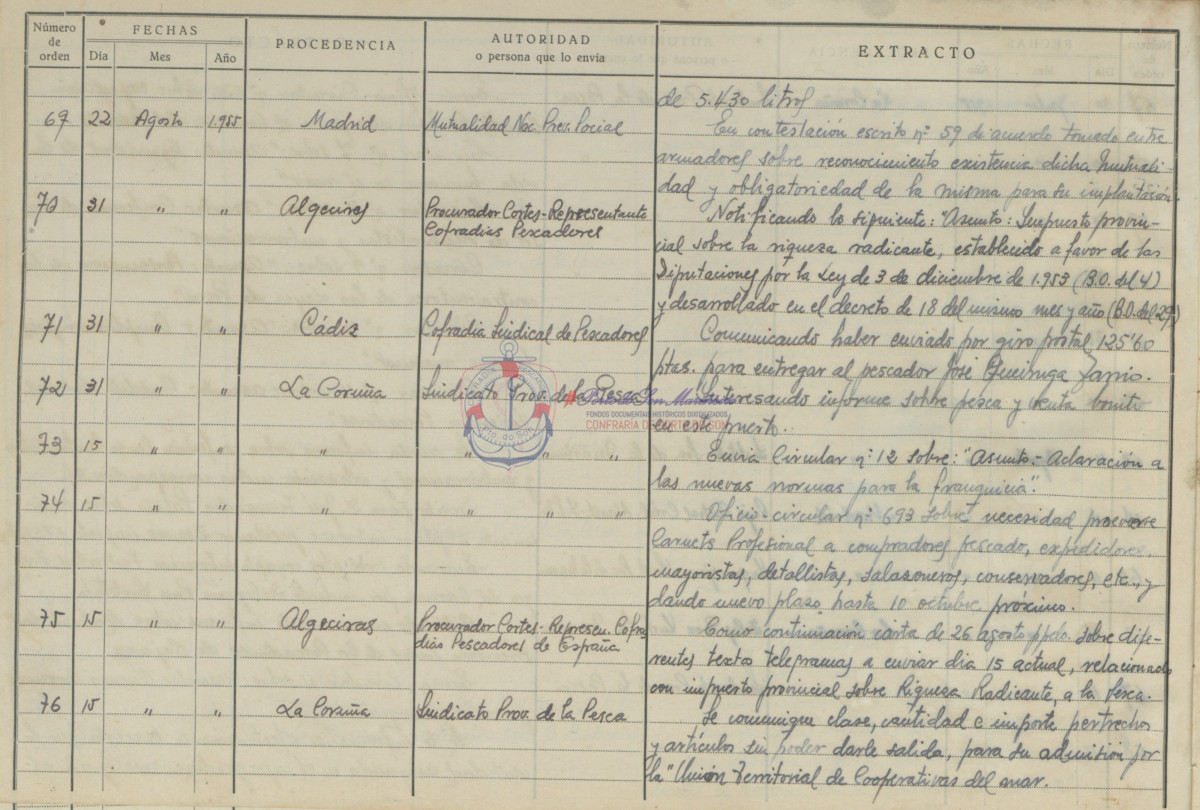 Número de orden
FECHAS
Día Mes Año
PROCEDENCIA
AUTORIDAD
o persona que lo envía
EXTRACTO
de 5.430 litros
69 22 Agosto 1.955 Madrid Mutualidad Nac. Prev. Social
En contestación escrito nº 59 di acuerdo tomado entre
armadores sobre reconocimiento existencia dicha Mutuali-
dad y obligatoriedad de la misma para su implantación.
70 31 " " Algeciras Procurador Cortes-Representante
Cofradias Pescadores
Notificando lo siguiente: "Asunto: Impuesto provin-
cial sobre la riqueza radicante, establecido a favor de las
Diputaciones por la Ley de 3 de diciembre de 1.953 (B.O. del 4)
y desarrollado en el decreto de 18 del mismo mes y año (B.O. del 29)
71 31 " " Cádiz Cofradia Sindical de Pescadores
Comunicando haber enviado por giro postal 125'60
ptas. para entregar al pescador José Queiruga
72 31 " " La Coruña Sindicato Prov. de la Pesca
Interesando informe sobre pesca y venta bonito
en este puerto.
73 15 " " " " " "
Envia Circular nº 12 sobre: "Asunto:- Aclaración a
las nuevas normas para la franquicia".
74 15 " " " " " "
Oficio-circular nº 693 sobre necesidad proveerse
Carnets Profesional a compradores pescado, expedidores,
mayoristas, detallistas, salazoneros, conservadores, etc., y
dando nuevo plazo hasta 10 octubre próximo.
75 15 " " Algeciras Procurador Cortes-Represen. Cofra
dias Pescadores de España
Como continuación carta de 26 agosto ppdo. sobre dife-
rentes textos telegramas a enviar dia 15 actual, relacionado
con impuesto provincial sobre Riqueza Radicante, a la Pesca.
76 15 " " La Coruña Sindicato Prov. de la Pesca
Se comunique clase, cantidad e importe pertrechos
y artículos sin poder darle salida, para su admisión por
la "Unión Territorial de Cooperativas del mar.
FONDOS DOCUMENTAIS HISTÓRICOS DIXITALIZADOS
CONFRARÍA DE PORTO DO SON